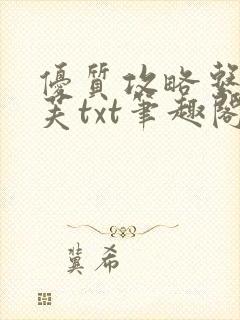 優質攻略
芙txt筆趣閣
冀希